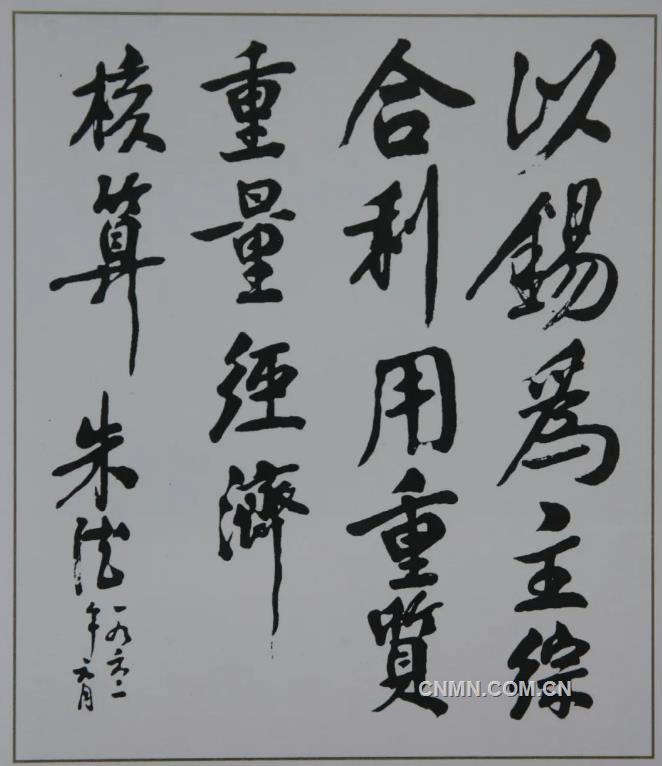 以錫爲主綜
合利用重質
重量經濟
核算 朱德
一九六二
年元月
CNMN.COM.CN